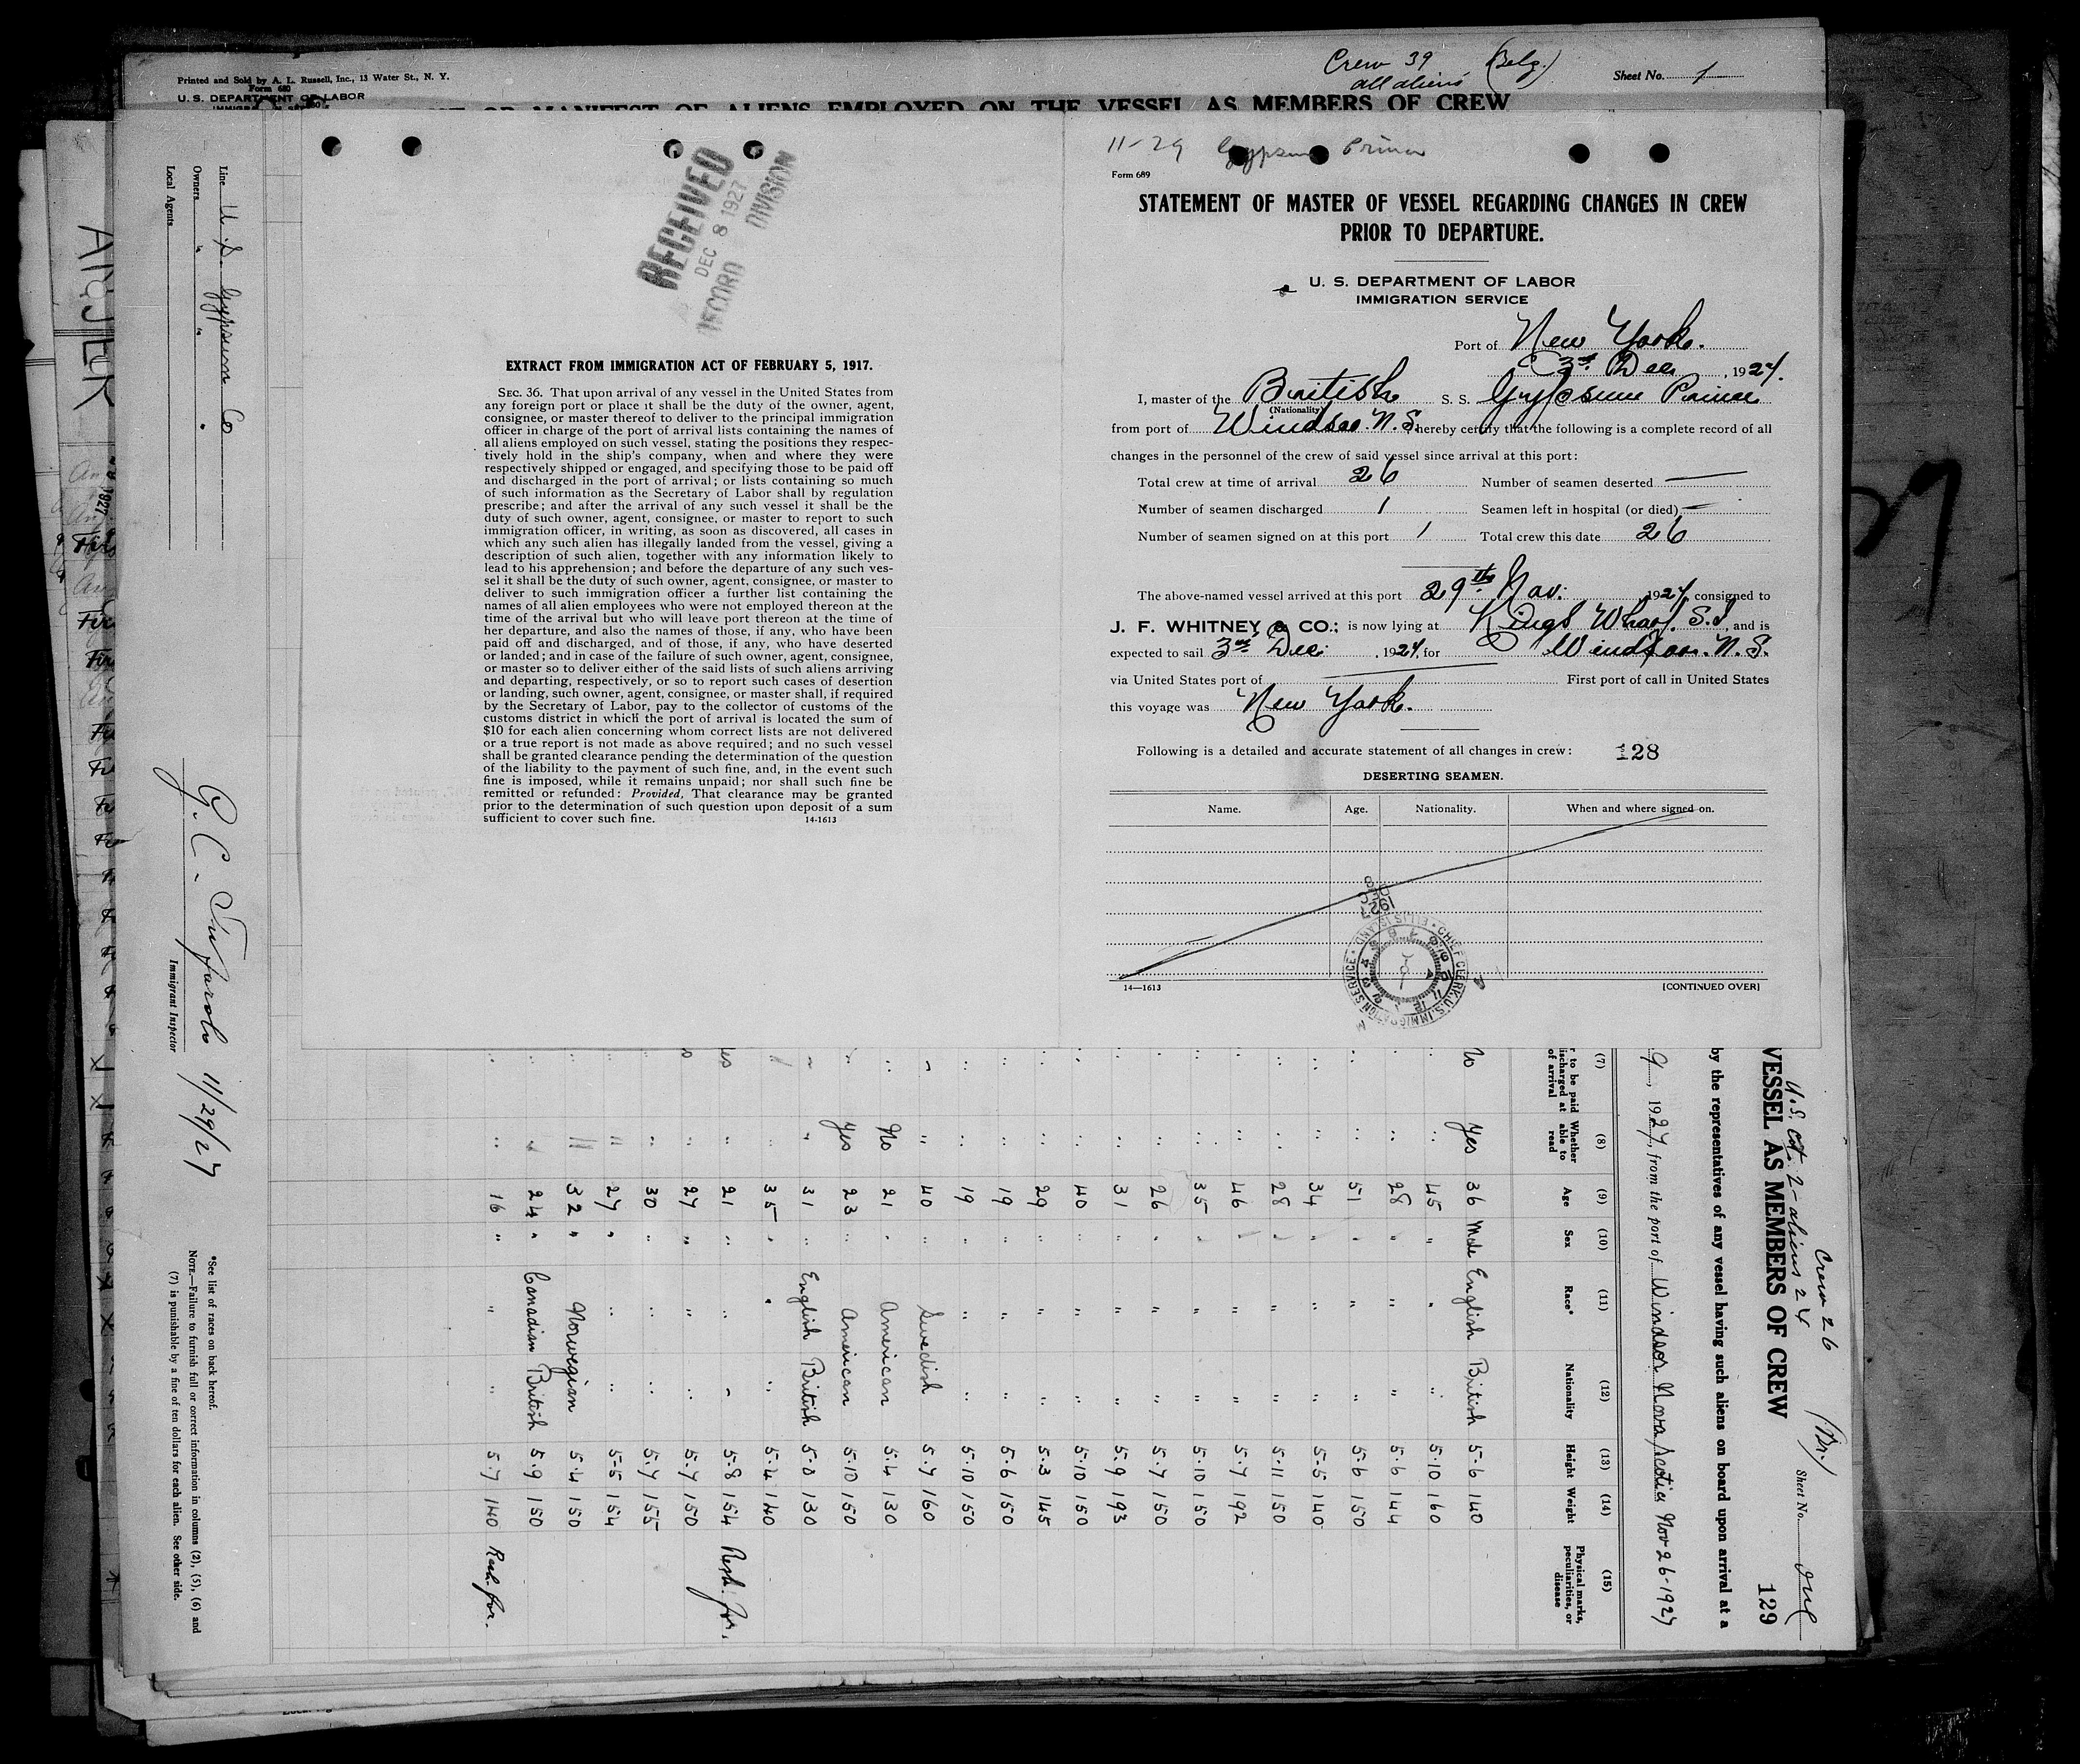 Printed and Sold by A. L. Russell, Inc., 13 Water St., N. Y.
Form 680
U. S. DEPARTMENT OF LABOR
Crew 39 (Belg.)
all aliens
Sheet No. 1
OR MANIFEST OF ALIENS EMPLOYED ON THE VESSEL AS MEMBERS OF CREW
RECEIVED
DEC 8 1927
RECORD DIVISION
EXTRACT FROM IMMIGRATION ACT OF FEBRUARY 5, 1917.
SEC. 36. That upon arrival of any vessel in the United States from
any foreign port or place it shall be the duty of the owner, agent,
consignee, or master thereof to deliver to the principal immigration
officer in charge of the port of arrival lists containing the names of
all aliens employed on such vessel, stating the positions they respec-
tively hold in the ship's company, when and where they were
respectively shipped or engaged, and specifying those to be paid off
and discharged in the port of arrival; or lists containing so much
of such information as the Secretary of Labor shall by regulation
prescribe; and after the arrival of any such vessel it shall be the
duty of such owner, agent, consignee, or master to report to such
immigration officer, in writing, as soon as discovered, all cases in
which any such alien has illegally landed from the vessel, giving a
description of such alien, together with any information likely to
lead to his apprehension; and before the departure of any such ves-
sel it shall be the duty of such owner, agent, consignee, or master to
deliver to such immigration officer a further list containing the
names of all alien employees who were not employed thereon at the
time of the arrival but who will leave port thereon at the time of
her departure, and also the names of those, if any, who have been
paid off and discharged, and of those, if any, who have deserted
or landed; and in case of the failure of such owner, agent, consignee,
or master so to deliver either of the said lists of such aliens arriving
and departing, respectively, or so to report such cases of desertion
or landing, such owner, agent, consignee, or master shall, if required
by the Secretary of Labor, pay to the collector of customs of the
customs district in which the port of arrival is located the sum of
$10 for each alien concerning whom correct lists are not delivered
or a true report is not made as above required; and no such vessel
shall be granted clearance pending the determination of the question
of the liability to the payment of such fine, and, in the event such
fine is imposed, while it remains unpaid; nor shall such fine be
remitted or refunded: Provided, That clearance may be granted
prior to the determination of such question upon deposit of a sum
sufficient to cover such fine. 14-1613
11-29 Gypsum Prince
Form 689
STATEMENT OF MASTER OF VESSEL REGARDING CHANGES IN CREW
PRIOR TO DEPARTURE.
U. S. DEPARTMENT OF LABOR
IMMIGRATION SERVICE
Port of New York.
3rd Dec, 1927.
I, master of the British S. S. Gypsum Prince
(Nationality)
from port of Windsor. N.S. hereby certify that the following is a complete record of all
changes in the personnel of the crew of said vessel since arrival at this port:
Total crew at time of arrival 26 Number of seamen deserted —
Number of seamen discharged 1 Seamen left in hospital (or died) —
Number of seamen signed on at this port 1 Total crew this date 26
The above-named vessel arrived at this port 29th Nov: 1927, consigned to
J. F. WHITNEY & CO.; is now lying at Kings Wharf. S.I, and is
expected to sail 3rd Dec: , 1927, for Windsor. N.S.
via United States port of — First port of call in United States
this voyage was New York.
Following is a detailed and accurate statement of all changes in crew: 128
DESERTING SEAMEN.
Name. Age. Nationality. When and where signed on.
CHIEF CLERK, U.S. IMMIGRATION SERVICE • ELLIS ISLAND •
14—1613 [CONTINUED OVER]
Crew 26 (Br.)
U.S. Cit. 2 - aliens 24
Sheet No. one
VESSEL AS MEMBERS OF CREW 129
by the representatives of any vessel having such aliens on board upon arrival at a
9, 1927, from the port of Windsor Nova Scotia Nov 26-1927
(7) (8) (9) (10) (11) (12) (13) (14) (15)
to be paid discharged at of arrival Whether able to read Age Sex Race* Nationality Height Weight Physical marks, peculiarities, or disease
No Yes 36 Male English British 5-6 140
" " 45 " " " 5-10 160
" " 28 " " " 5-6 144
" " 51 " " " 5-6 150
" " 34 " " " 5-5 140
" " 28 " " " 5-11 150
" " 46 " " " 5-7 192
" " 35 " " " 5-10 150
" " 26 " " " 5-7 150
" " 31 " " " 5-9 193
" " 40 " " " 5-10 150
" " 29 " " " 5-3 145
" " 19 " " " 5-6 150
" " 19 " " " 5-10 150
" " 40 " Swedish 5-7 160
" No 21 " American 5-4 130
" Yes 23 " American 5-10 150
" " 31 " English British 5-8 130
" " 35 " " " 5-4 140
Yes " 21 " " " 5-8 154
" 27 " " " 5-7 150
" " 30 " " " 5-7 155
" " 27 " " " 5-5 154
" " 32 " Norwegian 5-4 150
" " 24 " Canadian British 5-9 150
" " 16 " " " 5-7 140
Line U.S. Gypsum Co
Owners " " "
Local Agents
G. C. 11/29/27
Immigrant Inspector
*See list of races on back hereof.
NOTE.—Failure to furnish full or correct information in columns (2), (5), (6) and
(7) is punishable by a fine of ten dollars for each alien. See other side.